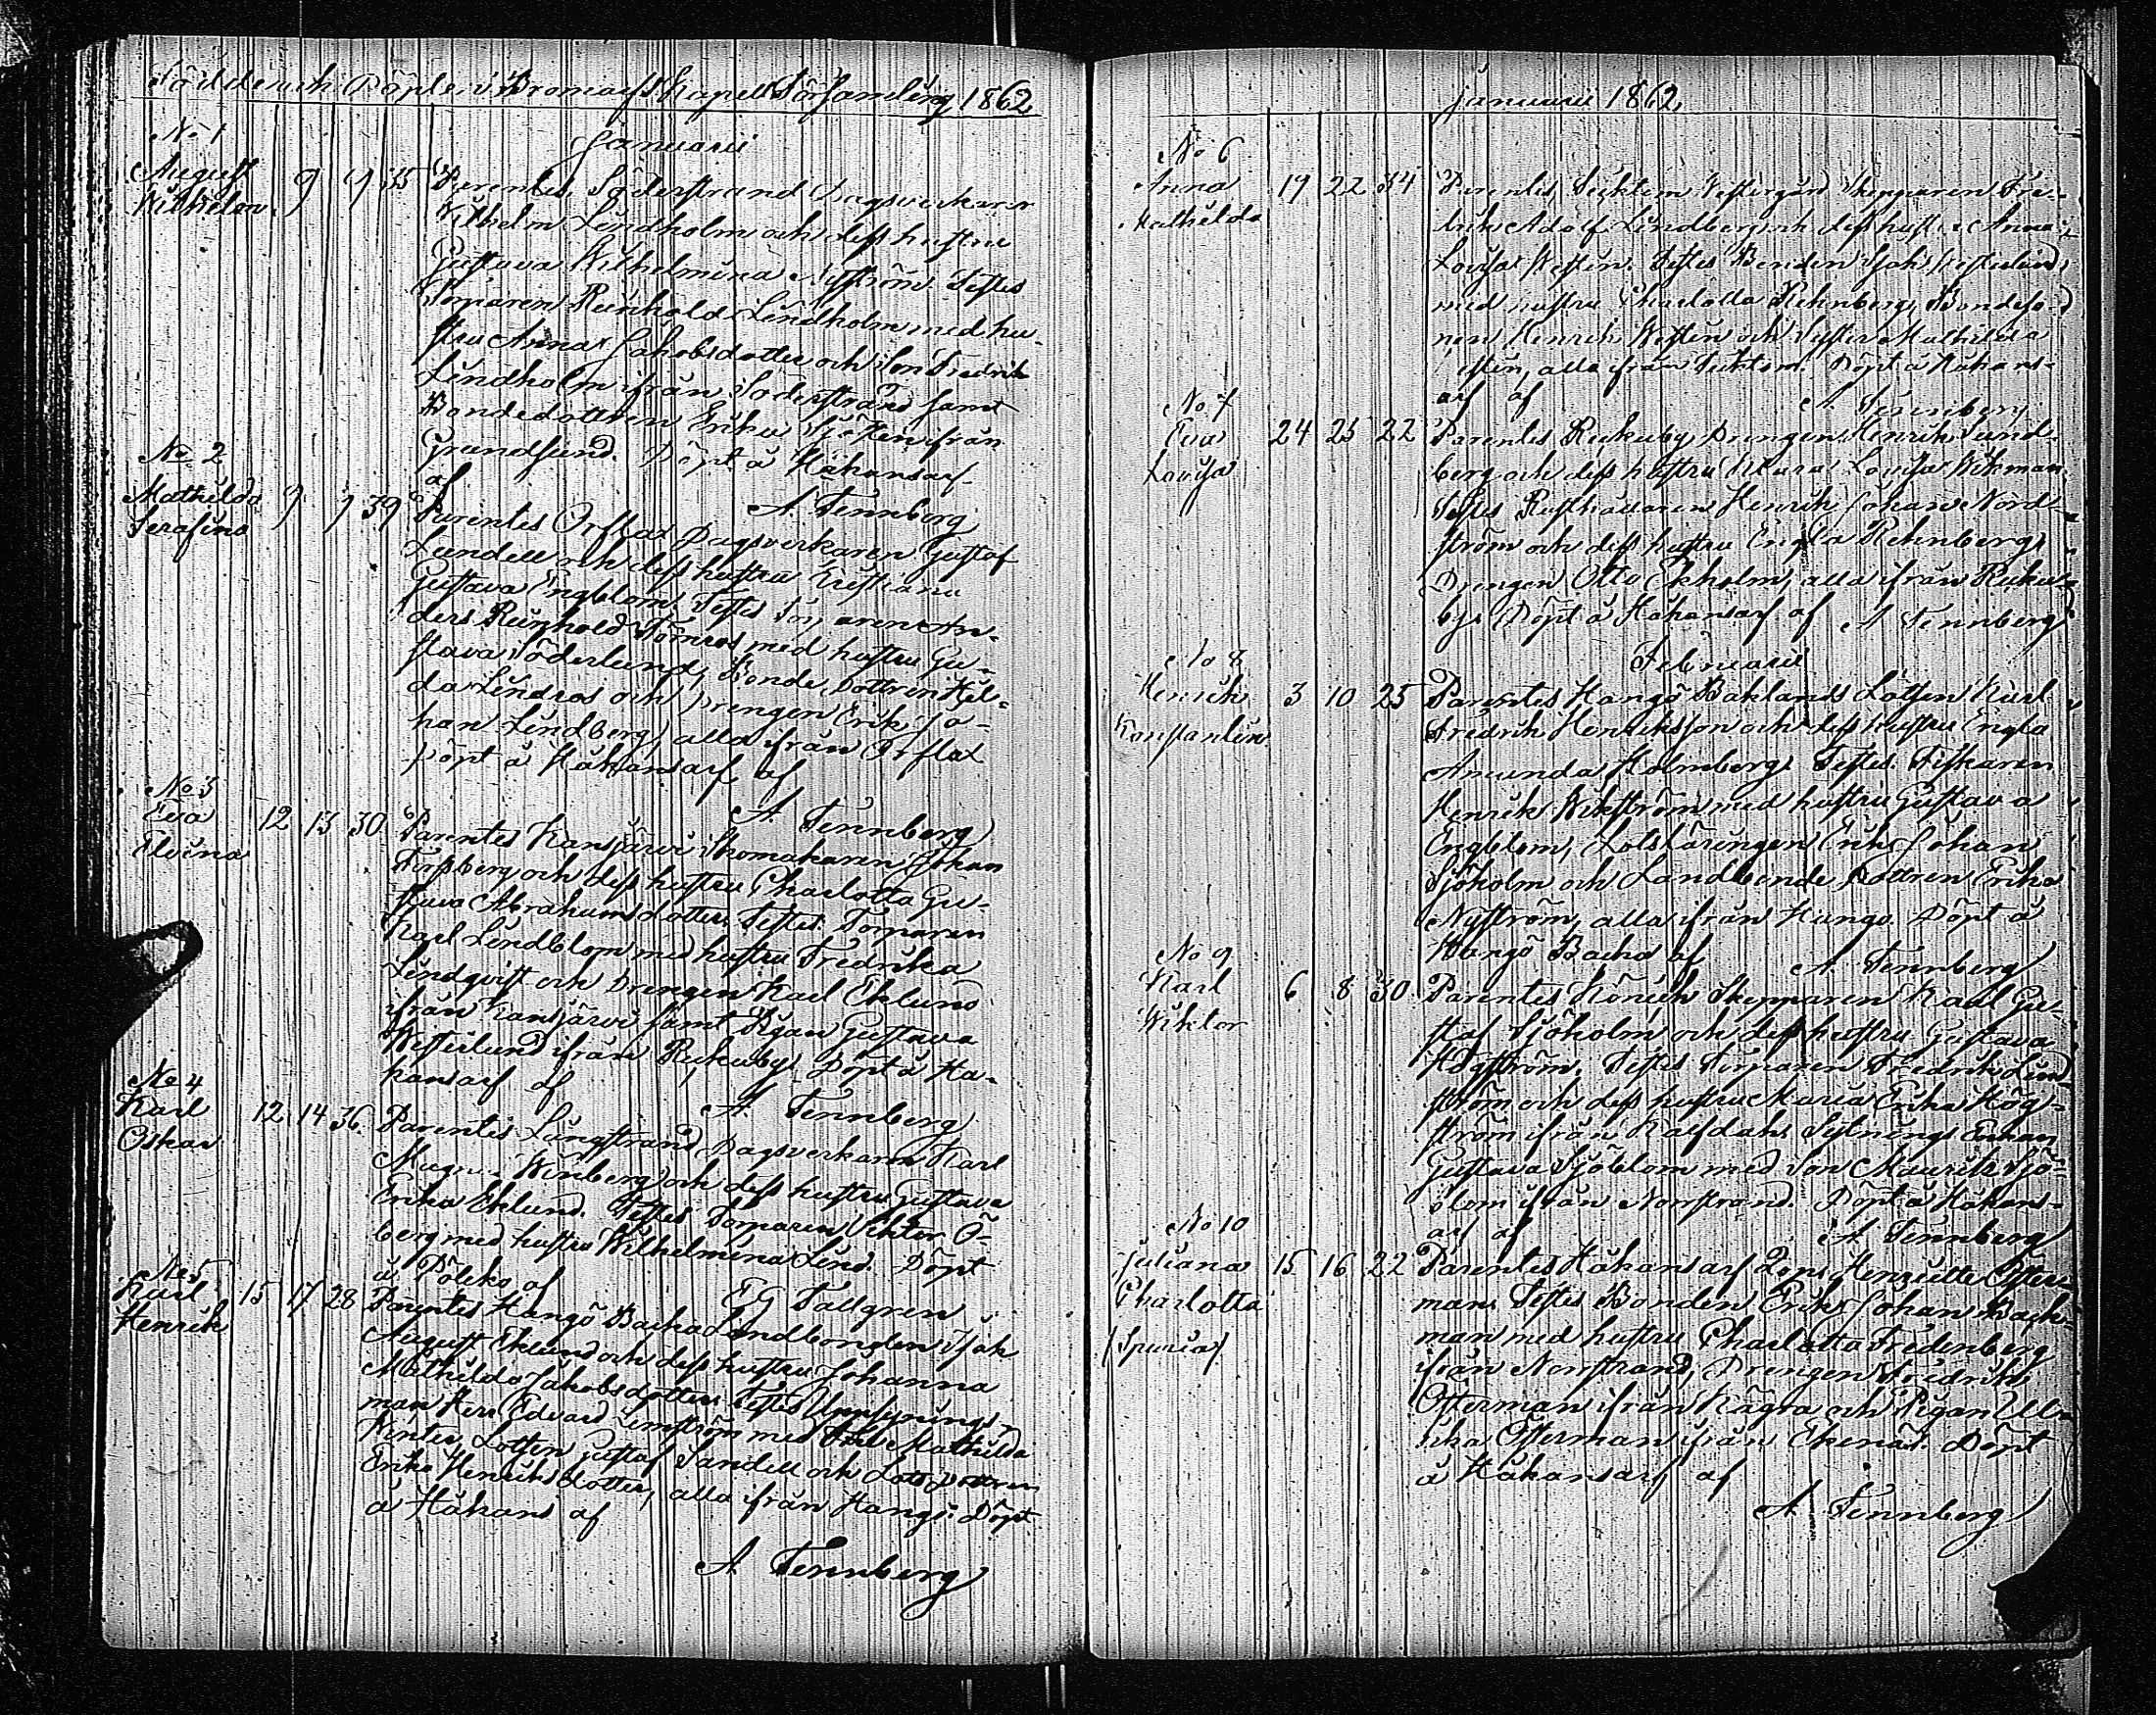 Födde och Döpte i Bromarfs Kapell Församling 1862
Januarii
No 1
August 9 9 35 Parentes Söderstrand Dagsverkaren
Wilhelm Wilhelm Lindholm och dess hustru
Gustava Wilhelmina Nyström. Testes
Torparen Reinhold Lindholm med hu-
stru Anna Jakobsdotter och Son Fredrik
Lindholm ifrån Söderstrand samt
Bondedottren Erika Sjösten ifrån
Grundsund. Döpt å Håkansarf
af A Tennberg
No 2
Mathilda 9 9 39 Parentes Orslax Dagsverkaren Gustaf
Serafina Lundell och dess hustru Kristiana
Gustava Engblom. Testes Torparen An-
ders Reinhold Törnros med hustru Gu-
stava Söderlund, Bonde Dottren Hil-
da Lindros och Drengen Erik Jo-
han Lindberg, alla ifrån Orslax
Döpt å Håkansarf af
A Tennberg
No 3
Eva 12 13 30 Parentes Kansjärvi Skomakaren Johan
Elvina Forssberg och dess hustru Charlotta Gu-
stava Abrahamsdotter. Testes Torparen
Karl Lindblom med hustru Fredrika
Lindqvist och Drengen Karl Eklund
ifrån Kansjärvi samt Pigan Gustava
Westerlund ifrån Rukuby. Döpt å Hå-
kansarf af
A. Tennberg
No 4
Karl 12 14 36 Parentes Långstrand Dagsverkaren Karl
Oskar Magnus Winberg och dess hustru Gustava
Erika Eklund. Testes Torparen Viktor Ö-
berg med hustru Wilhelmina Lind. Döpt
å Pöleko af E G Tallgren
No 5
Karl 15 17 28 Parentes Hangö Backa Landbonden Isak
Henrik August Eklund och dess hustru Johanna
Mathilda Jakobsdotter. Testes Uppsynings-
man Herr Edvard med Mathilda
Winter, Lotsen Gustaf Sandell och Lots Dottren
Erika Henriksdotter, alla ifrån Hangö. Döpt
å Håkans af
A Tennberg
Januarii 1862
No 6
Anna 19 22 34 Parentes Tecktom Westergård Skepparen Fre-
Mathilda drik Adolf Lindberg och dess hustru Anna
Lovisa Westin. Testes Bonden Isak Westerlund
med hustru Charlotta Rehnberg, Bondeso-
nen Henrik Westin och Syster Mathilda
Westin, alla ifrån Tecktom. Döpt å Håkans-
arf af A. Tennberg
No 7
Eva 24 25 22 Parentes Rukuby Drengen Henrik Sund-
Lovisa berg och dess hustru Klara Lovisa Wikman
Testes Rusthållaren Henrik Johan Nord-
ström och dess hustru Engla Rehnberg,
Drengen Otto Ekholm, alla ifrån Ruku-
by. Döpt å Håkansarf af A Tennberg
Februarii
No 8
Henrik 3 10 25 Parentes Hangö Baklands Lotsen Karl
Konstantin Fredrik Henriksson och dess hustru Engla
Amanda Holmberg. Testes Fiskaren
Henrik Wikström med hustru Gustava
Engblom, Lotslärlingen Erik Johan
Sjöholm och Landbonde Dottren Erika
Nyström, alla ifrån Hangö. Döpt å
Hangö Backa af A Tennberg
No 9
Karl 6 8 30 Parentes Skepparen Karl Gu-
Wiktor staf Sjöholm och dess hustru Gustava
Högström. Testes Torparen Fredrik Lind-
ström och dess hustru Maria Erika Hög-
ström ifrån Kalfdahl Sytnings Enkan
Gustava Sjöblom med Son Maurits Sjö-
blom ifrån Norrstrand. Döpt å Håkans-
arf af A Tennberg
No 10
Juliana 15 16 22 Parentes Håkansarf Henriette Öster-
Charlotta man. Testes Bonden Erik Johan Back-
(Spuria) man med hustru Charlotta Fredenberg
ifrån Norrstrand, Drengen Fredrik
Österman ifrån Kägra och Pigan Ul-
rika Österman ifrån Ekenäs. Döpt
å Håkansarf af
A Tennberg